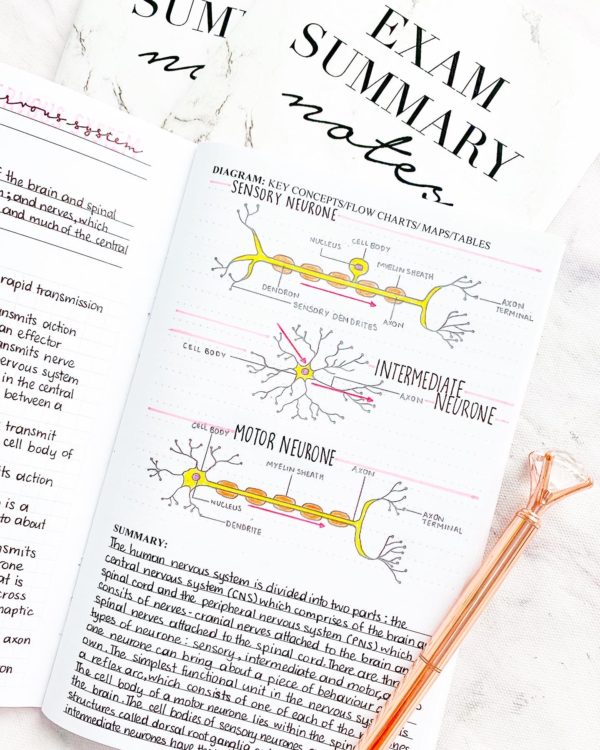 SUM
EXAM
SUMMARY
notes
nervous system
the brain and spinal
and nerves, which
and much of the central
rapid transmission
transmits action
an effector
transmits nerve
nervous system
in the central
between a
transmit
cell body of
action
is a
to about
across
axon
DIAGRAM: KEY CONCEPTS/FLOW CHARTS/ MAPS/TABLES
SENSORY NEURONE
NUCLEUS
CELL BODY
MYELIN SHEATH
AXON TERMINAL
DENDRON
SENSORY DENDRITES
AXON
CELL BODY
INTERMEDIATE
NEURONE
AXON
MOTOR NEURONE
CELL BODY
MYELIN SHEATH
AXON
AXON
TERMINAL
NUCLEUS
DENDRITE
SUMMARY:
The human nervous system is divided into two parts: the
central nervous system (CNS) which comprises of the brain a
spinal cord and the peripheral nervous system (PNS) which
consits of nerves - cranial nerves attached to the brain an
spinal nerves attached to the spinal cord. There are thr
types of neurone: sensory, intermediate and motor, a
one neurone can bring about a piece of behaviour o
own. The simplest functional unit in the nervous system is
a reflex arc, which consists of one of each of the neurones
The cell body of a motor neurone lies within the spin
the brain. The cell bodies of sensory neurones
structures called dorsal root ganglia
intermediate neurones have th